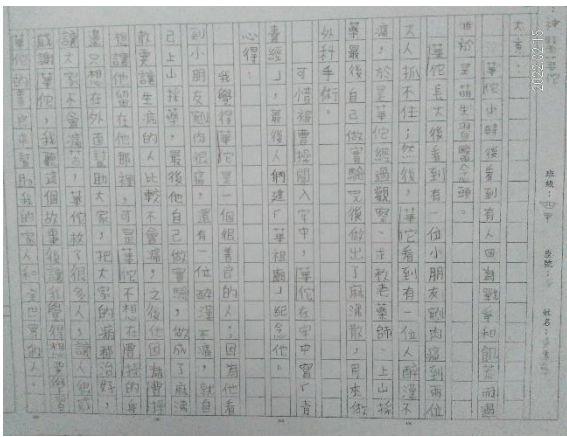 神醫華佗
班級：四甲 座號： 姓名：
大意：
華佗小時後看到有人因為戰爭和飢荒而過
於是萌生習醫念頭。
華佗長大後看到有一位小朋友刮肉痛到兩位
大人抓不住；然後，華佗看到有一位人醉漢不
痛，於是華佗經過觀察、求教老藥師、上山採
藥最後自己做實驗完後做出了麻沸散，用來做
外科手術。
可惜被曹操關入牢中，華佗在牢中寫「青
囊經」，最後人們建「華祖廟」紀念他。
心得：
我覺得華佗是一個很善良的人，因為他看
到小朋友刮肉很痛，還有一位醉漢不痛，就自
己上山採藥，最後他自己做實驗，做成了麻沸
散要讓生病的人比較不會痛，之後他因為曹操
想讓他留在他那裡，可是華佗不想在曹操的身
邊只想在外面幫助大家，把大家的病都治好，
讓大家不會痛苦，華佗救了很多人，讓人想
感謝華佗，我聽這個故事後讓我覺得想要學習
華佗的 幫助我的家人和全世界的人。
2022/02/15